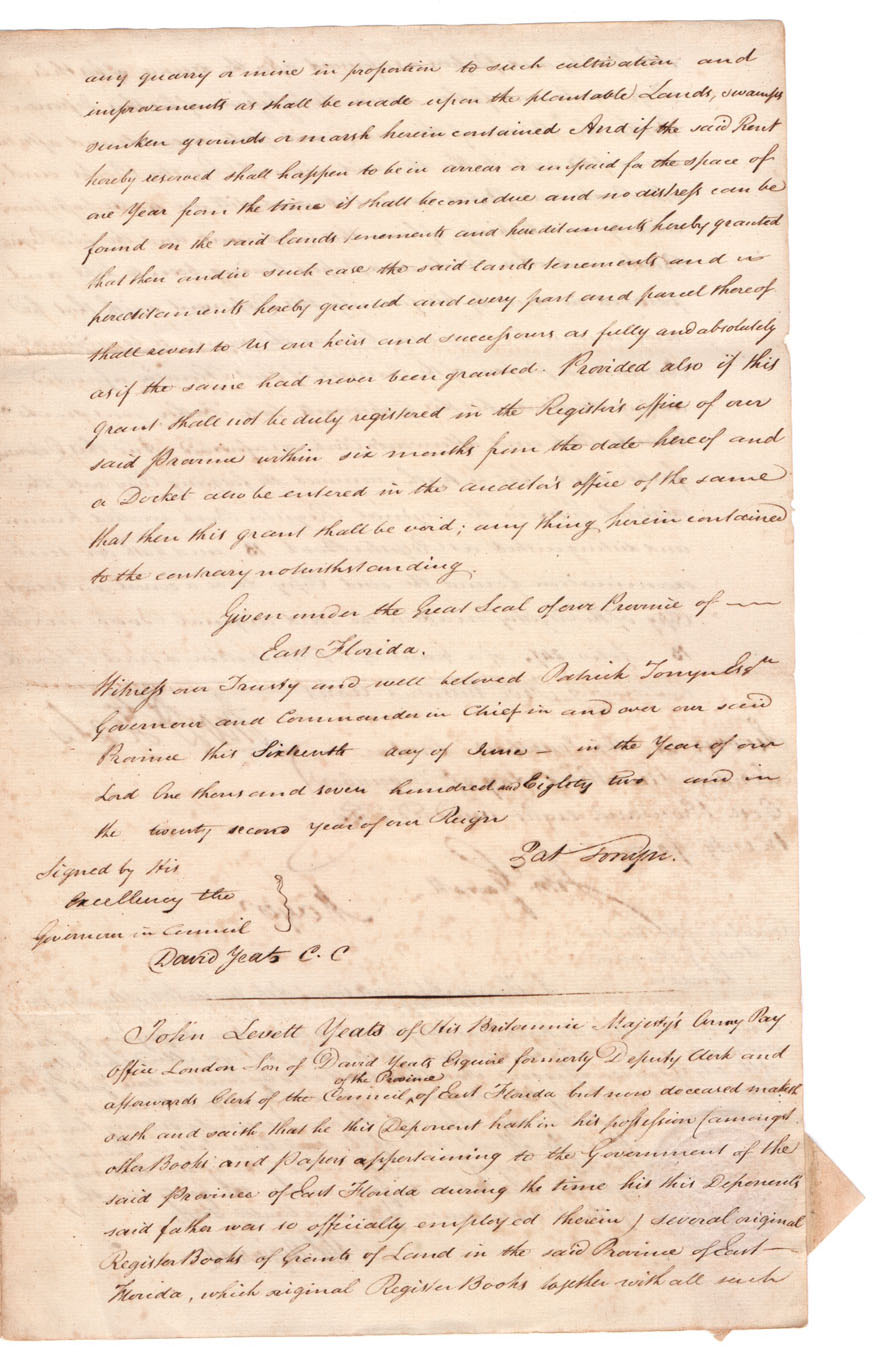 any quarry or mine in proportion to such cultivation and
improvements as shall be made upon the plantable Lands, swamps
sunken grounds or marsh herein contained And if the said Rent
hereby reserved shall happen to be in arrear or unpaid for the space of
one Year from the time it shall become due and no distress can be
found on the said lands tenements and hereditaments hereby granted
that then and in such case the said lands tenements and
hereditaments hereby granted and every part and parcel thereof
shall revert to Us our heirs and successours as fully and absolutely
as if the same had never been granted. Provided also if this
grant shall not be duly registered in the Register's office of our
said Province within six months from the date hereof and
a Docket also be entered in the auditor's office of the same
that then this grant shall be void; any thing herein contained
to the contrary notwithstanding.
Given under the Great Seal of our Province of
East Florida.
Witness our Trusty and well beloved Patrick Tonyn Esqr
Governour and Commander in Chief in and over our said
Province this Sixteenth day of June — in the Year of our
Lord One thousand seven hundred and Eighty two and in
the twenty second Year of our Reign
Pat Tonyn.
Signed by His
Excellency the
Governour in Council
David Yeats C. C
John Levett Yeats of His Britannic Majesty's Army Pay
Office London Son of David Yeats Esquire formerly Deputy Clerk and
of the Province
afterwards Clerk of the Council ‸ of East Florida but now deceased maketh
oath and saith that he this Deponent hath in his possession (amongst
other Books and Papers appertaining to the Government of the
said Province of East Florida during the time his this Deponents
said father was so officially employed therein) several original
Register Books of Grants of Land in the said Province of East
Florida, which original Register Books together with all such